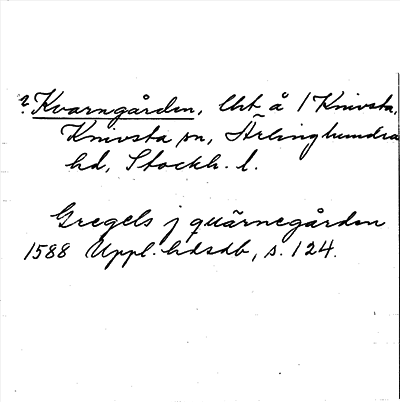 ? Kvarngården, lht å 1 Knivsta,
Knivsta sn, Ärlinghundra
hd, Stockh. l.
Gregels j quärnegården
1588 Uppl. hdsdb, s. 124.